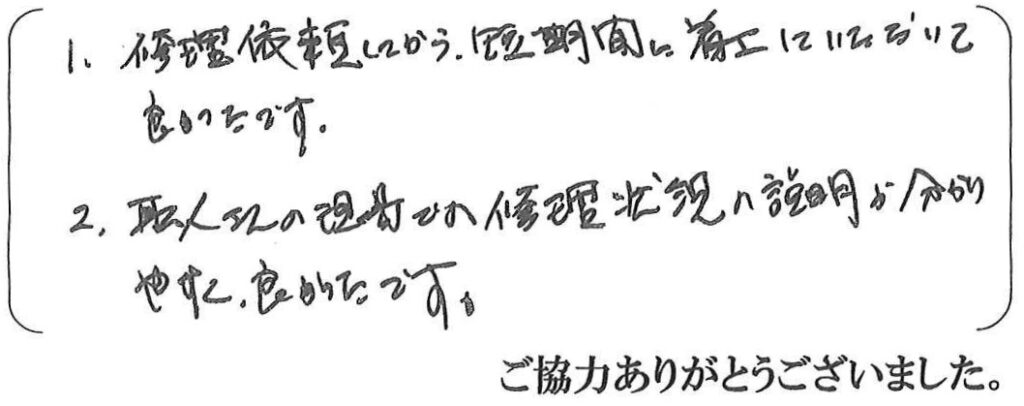 1. 修理依頼してから、短期間に着工していただいて
良かったです。
2. 職人さんの現場での修理状況の説明が分かり
やすく、良かったです。
ご協力ありがとうございました。